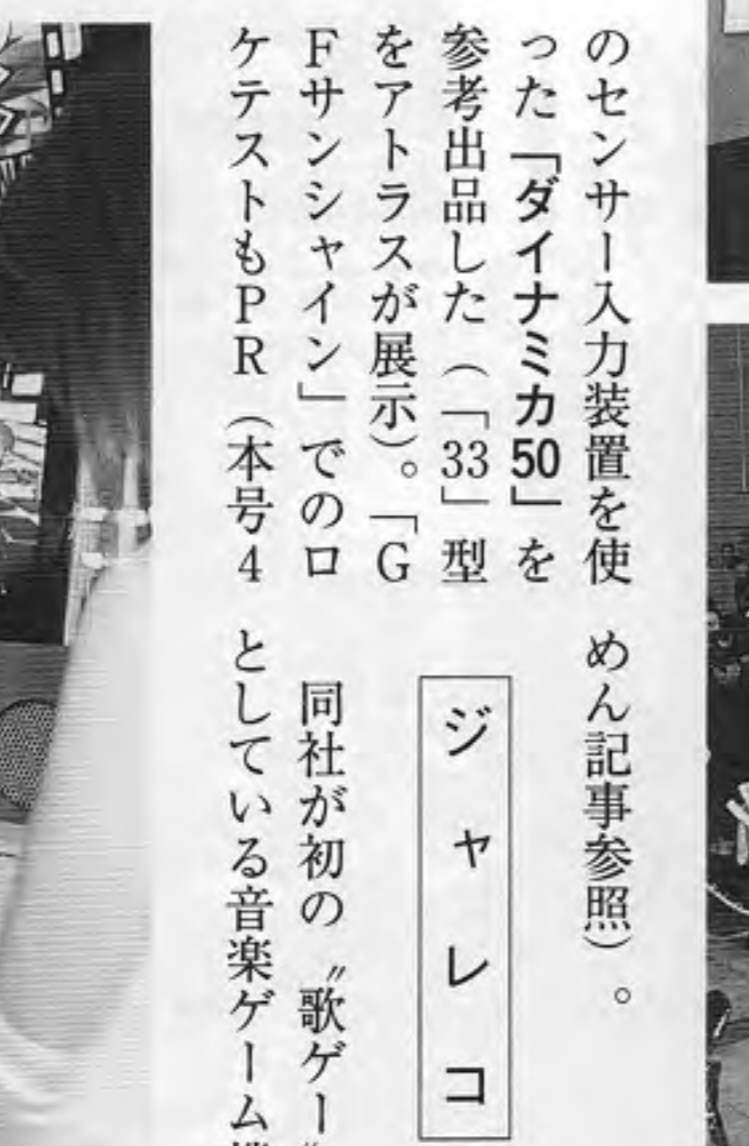 のセンサー入力装置を使
った「ダイナミカ50」を
参考出品した（「33」型
をアトラスが展示）。「G
Fサンシャイン」でのロ
ケテストもPR（本号4
めん記事参照）。
ジャレコ
同社が初の〝歌ゲー〟
としている音楽ゲーム